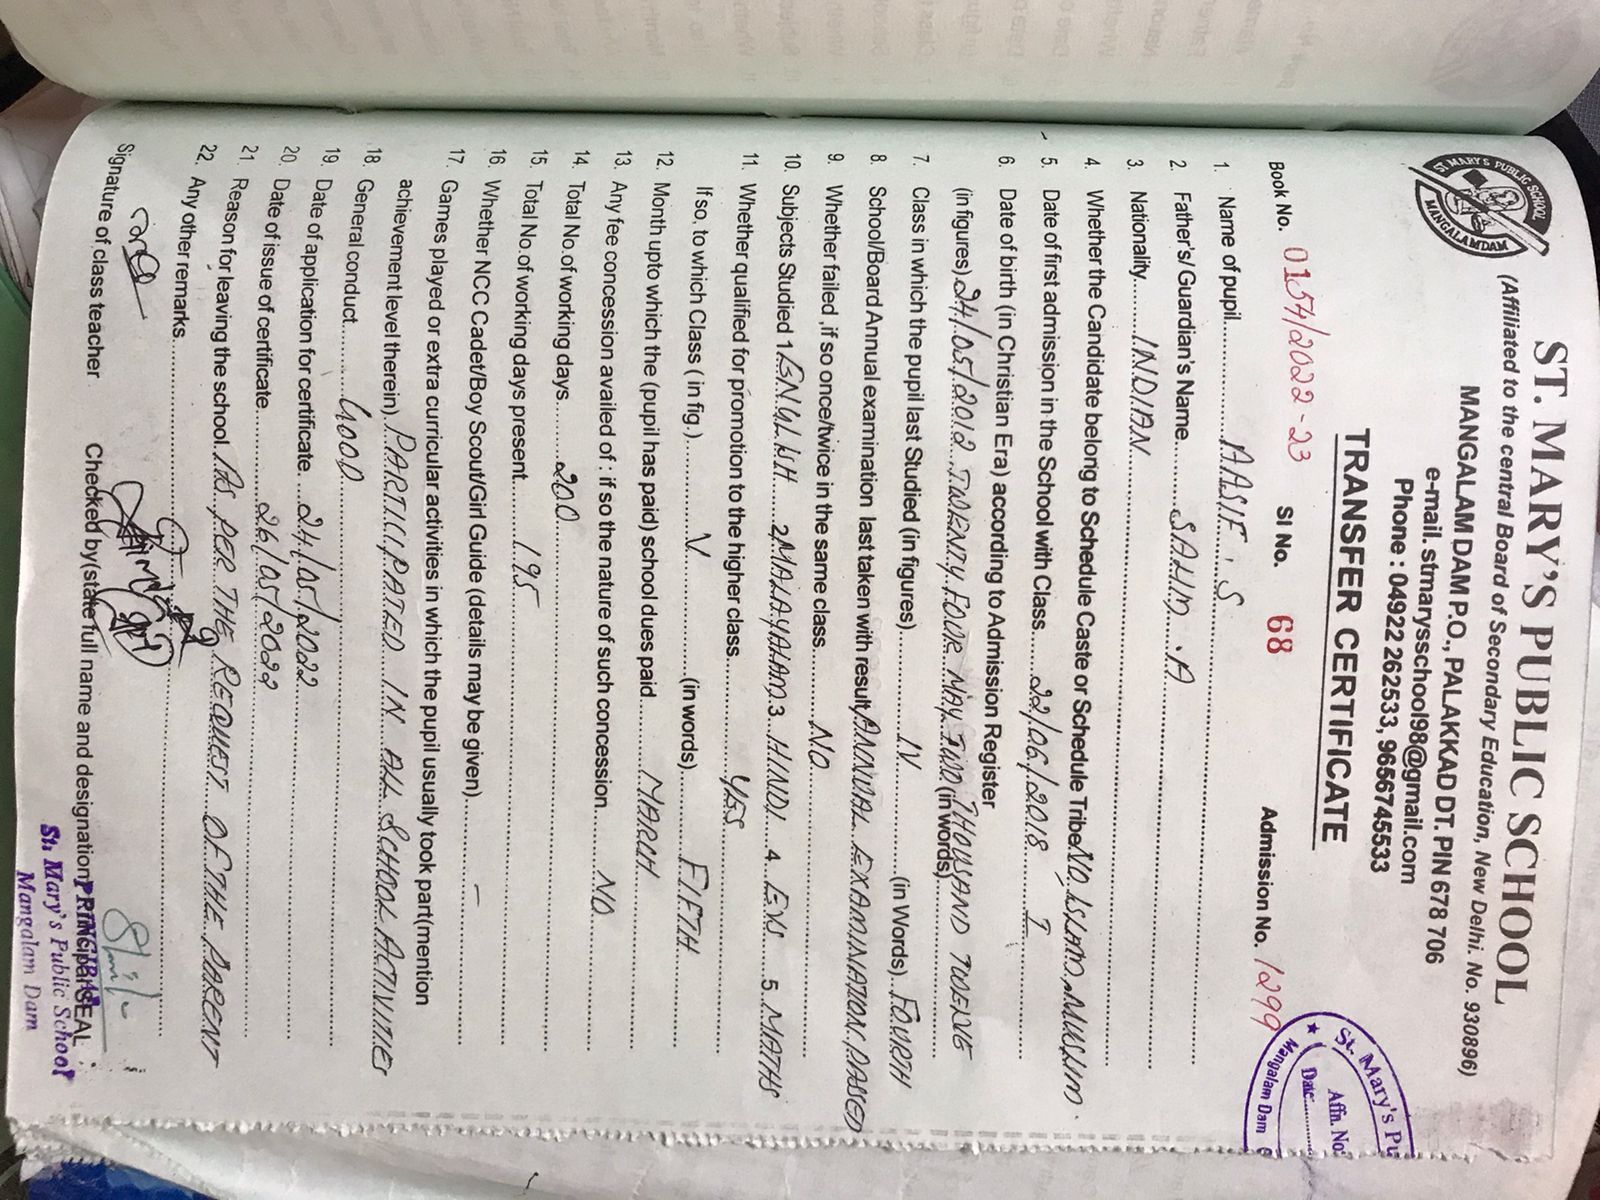 ST. MARY'S PUBLIC SCHOOL
(Affiliated to the central Board of Secondary Education, New Delhi. No. 930896)
MANGALAM DAM P.O., PALAKKAD DT. PIN 678 706
e-mail. stmarysschool98@gmail.com
Phone : 04922 262533, 9656745533
ST MARY'S PUBLIC SCHOOL
MANGALAMDAM
TRANSFER CERTIFICATE
St. Mary's Pu
Affn. No:
Date:
Mangalam Dam
Book No. 0154/2022-23 Sl No. 68 Admission No. 1299
1. Name of pupil AASIF . S
2. Father's/ Guardian's Name SALIM . A
3. Nationality INDIAN
4. Whether the Candidate belong to Schedule Caste or Schedule Tribe NO, ISLAM, MUSLIM.
5. Date of first admission in the School with Class 22/06/2018 I
6. Date of birth (in Christian Era) according to Admission Register
(in figures) 24/05/2012 TWENTY FOUR MAY TWO THOUSAND TWELVE (in words)
7. Class in which the pupil last Studied (in figures) IV (in Words) FOURTH
8. School/Board Annual examination last taken with result ANNUAL EXAMINATION, PASSED
9. Whether failed ,if so once/twice in the same class NO
10. Subjects Studied 1 ENGLISH 2 MALAYALAM 3 HINDI 4 EVS 5 MATHS
11. Whether qualified for promotion to the higher class YES
If so, to which Class ( in fig.) V (in words) FIFTH
12. Month upto which the (pupil has paid) school dues paid MARCH
13. Any fee concession availed of : if so the nature of such concession NO
14. Total No.of working days 200
15. Total No.of working days present 195
16. Whether NCC Cadet/Boy Scout/Girl Guide (details may be given) –
17. Games played or extra curricular activities in which the pupil usually took part(mention
achievement level therein) PARTICIPATED IN ALL SCHOOL ACTIVITIES
18. General conduct GOOD
19. Date of application for certificate 24/05/2022
20. Date of issue of certificate 26/05/2022
21. Reason for leaving the school AS PER THE REQUEST OF THE PARENT
22. Any other remarks
Signature of class teacher Checked by(state full name and designation) Principal SEAL
PRINCIPAL
St. Mary's Public School
Mangalam Dam